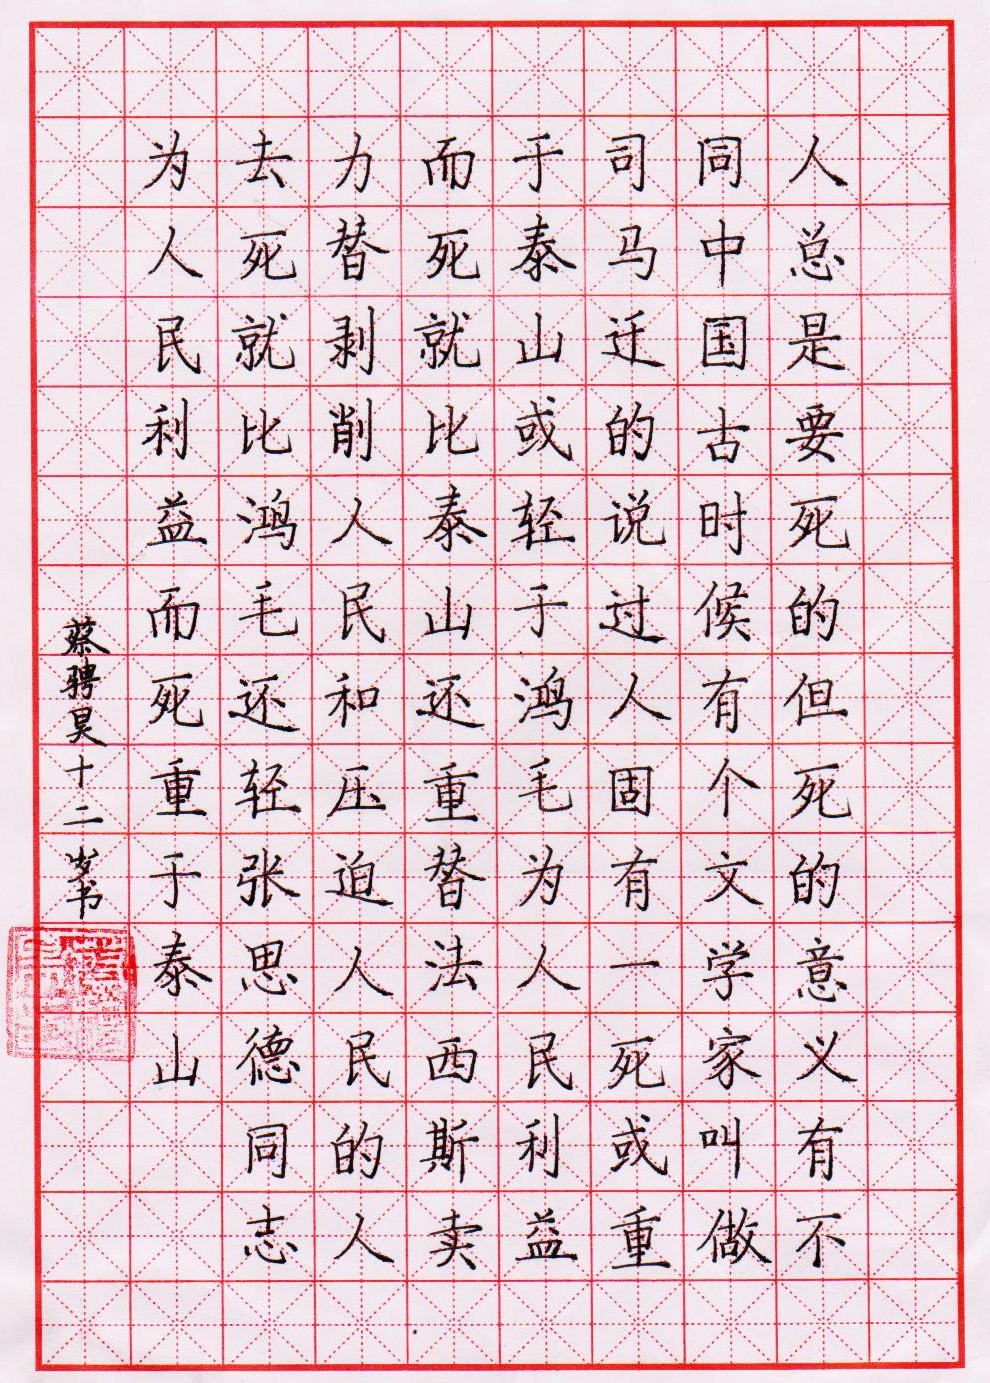 人总是要死的但死的意义有不
同中国古时候有个文学家叫做
司马迁的说过人固有一死或重
于泰山或轻于鸿毛为人民利益
而死就比泰山还重替法西斯卖
力替剥削人民和压迫人民的人
去死就比鸿毛还轻张思德同志
为人民利益而死重于泰山
蔡骋昊十二岁书